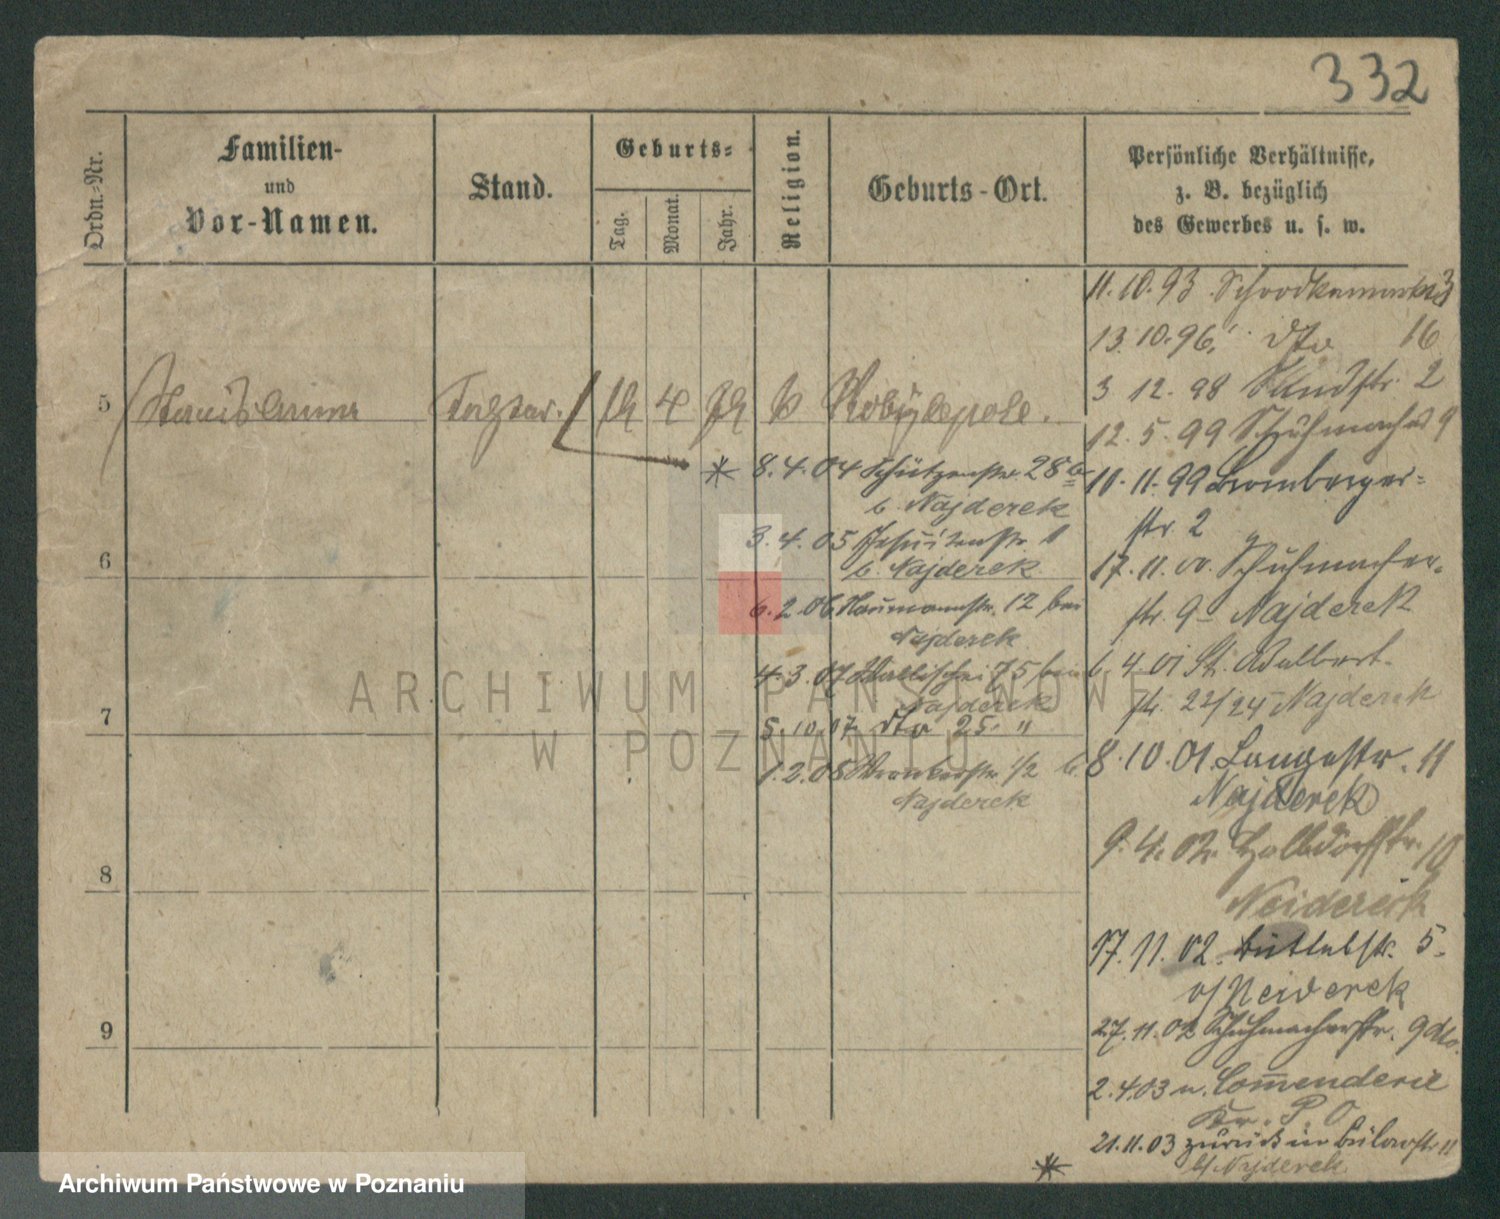 332
Ordn.-Nr.
Familien-
und
Vor-Namen.
Stand.
Geburts-
Tag.
Monat.
Jahr.
Religion.
Geburts-Ort.
Persönliche Verhältnisse,
z. B. bezüglich
des Gewerbes u. s. w.
11.10.93
13.10.96. dto 16
3 12. 98 2
12. 5. 99 Schuhmacher 9
10. 11. 99 Bromberger-
str. 2
17. 11. 00. Schuhmacher-
str. 9 Najderek
6. 4. 01 St. Adalbert-
str. 22/24 Najderek
8. 10. 01. Langestr. 11
Najderek
9. 4. 02. Halbdorfstr. 10
Neiderek
17. 11. 02. 5.
b/ Neiderek
27. 11. 02 Schuhmacherstr. 9 dto.
2. 4. 03 n. Commenderie
Kr. P. O
21. 11. 03 zurück in Bülowstr. 11
b/ Najderek
5
4
Kobylepole.
8. 4. 04 Schützenstr. 28
b. Najderek
3. 4. 05 Jesuitenstr. 1
b. Najderek
6. 2. 06. Naumannstr. 12 bei
Najderek
4. 3. 07 Wallischei 75 bei
Najderek
5. 10. 07. dto 25. "
1. 2. 08 Wronkerstr. 1/2 b.
Najderek
6
7
8
9
ARCHIWUM PAŃSTWOWE
W POZNANIU
Archiwum Państwowe w Poznaniu